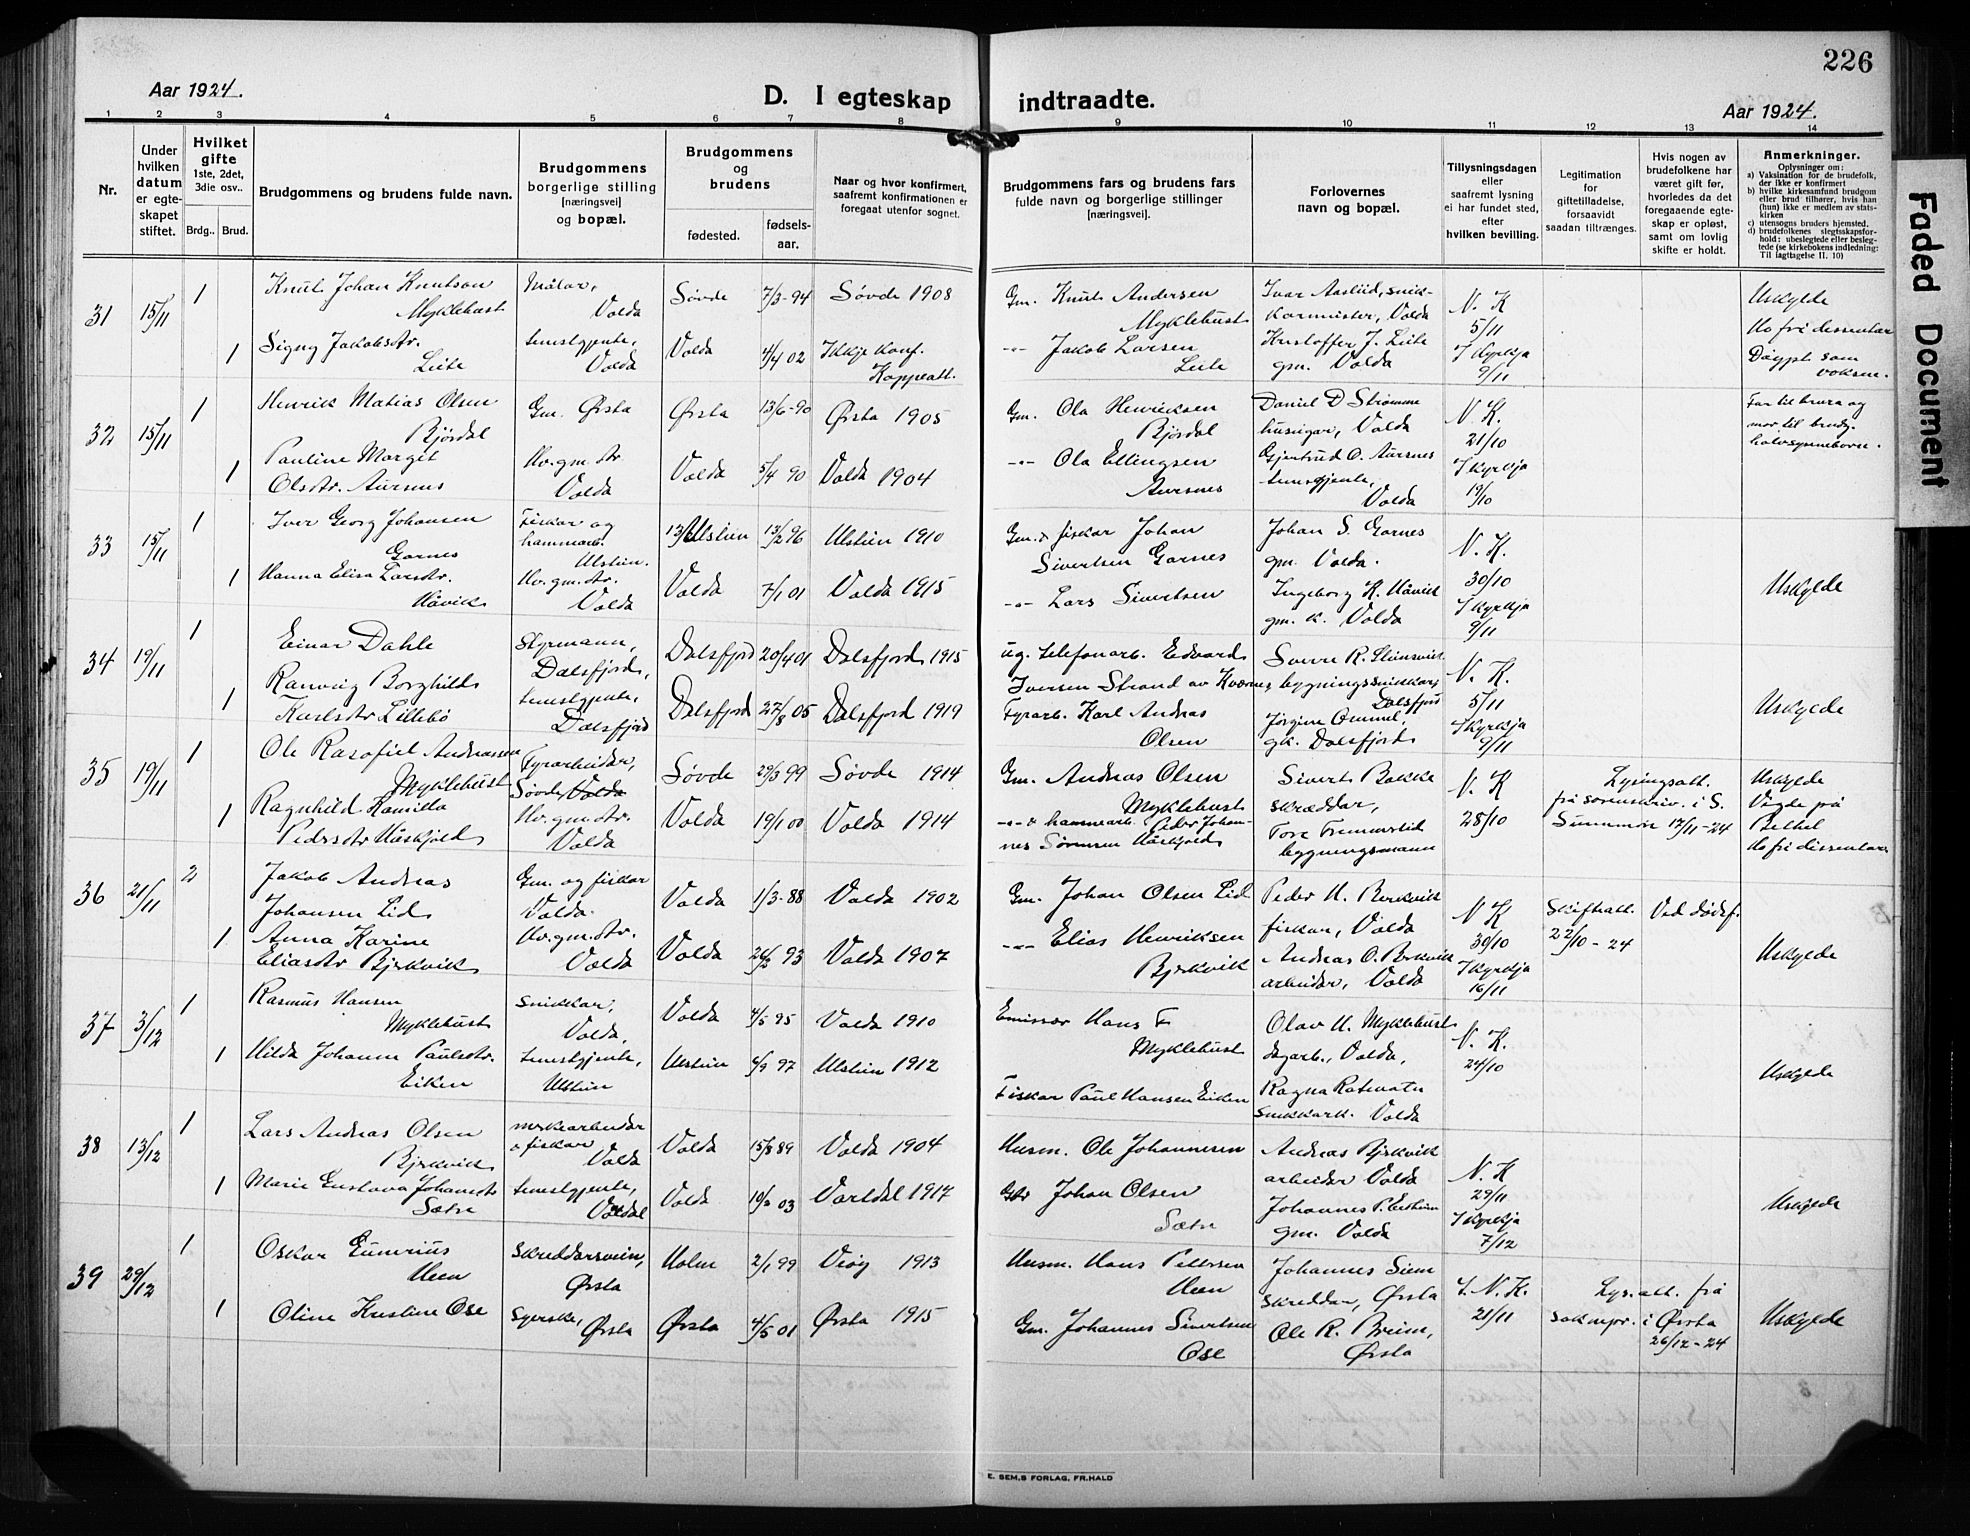 226
Aar 1924.
D. I egteskap indtraadte.
Aar 1924.
1 2 3 4 5 6 7 8 9 10 11 12 13 14
Nr.
Under hvilken datum er egte-skapet stiftet.
Hvilket gifte 1ste, 2det, 3die osv..
Brdg.. Brud.
Brudgommens og brudens fulde navn.
Brudgommens borgerlige stilling [næringsvei] og bopæl.
Brudgommens og brudens
fødested.
fødsels-aar.
Naar og hvor konfirmert, saafremt konfirmationen er foregaat utenfor sognet.
Brudgommens fars og brudens fars fulde navn og borgerlige stillinger [næringsvei].
Forlovernes navn og bopæl.
Tillysningsdagen eller saafremt lysning ei har fundet sted, efter hvilken bevilling.
Legitimation for giftetilladelse, forsaavidt saadan tiltrænges.
Hvis nogen av brudefolkene har været gift før, hvorledes da det foregaaende egte-skap er opløst, samt om lovlig skifte er holdt.
Anmerkninger.
Oplysninger om:
a) Vaksination for de brudefolk, der ikke er konfirmert
b) hvilke kirkesamfund brudgom eller brud tilhører, hvis han (hun) ikke er medlem av stats-kirken
c) utensogns bruders hjemsted.
d) brudefolkenes slegtsskapsfor-hold: ubeslegtede eller besleg-tede (se kirkebokens indledning: Til iagttagelse II. 10)
31 15/11 1 Knut Johan Knutson Myklebust Målar, Volda Søvde 7/3-94 Søvde 1908 Gm. Knut Andersen Myklebust Ivar Aaslid, snik-karmeister, Volda N. K 5/11 Uskylde
1 Signy Jakobsdtr. Leite tenestgjente, Volda Volda 4/4 02 Ikkje konf. Koppeatt. -"- Jakob Larsen Leite Kristoffer J. Leite gm. Volda I Kyrkja 9/11 Ho fri dissentar Døypt som voksen.
32 15/11 1 Henrik Matias Olsen Bjørdal Gm. Ørsta Ørsta 13/6-90 Ørsta 1905 Gm. Ola Henriksen Bjørdal Daniel D Strømme huseigar, Volda N. K. 21/10 Far til brura og mor til brudg. halvsyskenborn.
1 Pauline Margit Olsdtr. Aursnes Hv. gm. dtr Volda Volda 5/4 90 Volda 1904 -"- Ola Ellingsen Aursnes Gjertrud O. Aursnes tenestgjente, Volda I Kyrkja 19/10
33 15/11 1 Iver Georg Johansen Garnes Fiskar og hammarb. Ulstein. Ulstein 13/2 96 Ulstein 1910 Gm. & fiskar Johan Sivertsen Garnes Johan S. Garnes gm. Volda. N. K. 30/10
1 Hanna Elisa Larsdtr. Håvik Hv. gm. dtr. Volda Volda 7/1 01 Volda 1915 -"- Lars Sivertsen Ingeborg K. Håvik gm. k. Volda I kyrkja 9/11 Uskylde
34 19/11 1 Einar Dahle Styrmann, Dalsfjord, Dalsfjord 20/4 01 Dalsfjord 1915 ug. telefonarb. Edvard Iversen Strand av Kvernes Sverre R. Steinsvik bygningssnikkar, Dalsfjord N. K. 5/11
1 Ranveig Borghild Karlsdtr Lillebø tenestgjente, Dalsfjord Dalsfjord 27/8 05 Dalsfjord 1919 Fyrarb. Karl Andreas Olsen Jørgine Ommel, gk. Dalsfjord I Kyrkja 9/11 Uskylde
35 19/11 1 Ole Rasofiel Andreassen Myklebust Fyrarbeider, Søvde Volda Søvde 29/3 99 Søvde 1914 Gm. Andreas Olsen Myklebust Sivert Bakke skræddar, N. K 28/10 Lysingsatt. frå sorenskriv. i S. Sunnmør 17/11-24 Uskylde
1 Ragnhild Kamilla Pedersdtr Håskjold Hv. gm. dtr. Volda Volda 19/1 00 Volda 1914 -"- & hammearb. Peder Johan-nes Sørensen Håskjold Tore Fremmerlid bygningsmann Vigde på Bethel Ho fri dissentar
36 21/11 2 Jakob Andreas Johansen Lid Gm. og fiskar Volda. Volda 1/3-88 Volda 1902 Gm. Johan Olsen Lid Peder H. Berkvik fiskar, Volda N K 30/10 Skifteatt. 22/10-24 Ved dødsf.
1 Anna Karine Eliasdtr Bjerkvik Hv. gm. dtr. Volda Volda 26/2 93 Volda 1907 -"- Elias Henriksen Bjerkvik Andreas O. Berkvik arbeider, Volda I Kyrkja 16/11 Uskylde
37 3/12 1 Rasmus Hansen Myklebust Snikkar, Volda, Volda 4/5 95 Volda 1910 Emissær Hans F Myklebust Olav H. Myklebust dagarb., Volda, N. K. 24/10
1 Hilda Johanne Paulsdtr. Eiken tenestgjente, Ulstein Ulstein 6/9 97 Ulstein 1912 Fiskar Paul Hansen Eiken Ragna Rotevatn Snikkark. Volda Uskylde
38 13/12 1 Lars Andreas Olsen Bjerkvik mekearbeider & fiskar Volda Volda 15/8 89 Volda 1904 Husm. Ole Johannesen Andreas Bjerkvik arbeider Volda N. K 29/11
1 Marie Gustava Johansdtr Sætre tenestgjente, Volda 10/2 03 Vartdal 1917 Johan Olsen Sætre Johannes P. gm. Volda I Kyrkja 7/12 Uskylde
39 29/12 1 Oskar Gunerius Heen Skreddarsvein, Ørsta Holm 2/1 99 Veøy 1913 Husm. Hans Pettersen Heen Johannes Siem skreddar, Ørsta S. N. K. 21/11 Lys. att. frå soknepr. i Ørsta 26/12-24
1 Oline Kristine Ose Syerske, Ørsta Ørsta 4/5 01 Ørsta 1915 Gm. Johannes Sivertsen Ose Ole R. Breim, Ørsta Uskylde
E. SEM,S FORLAG, FR.HALD
Faded Document